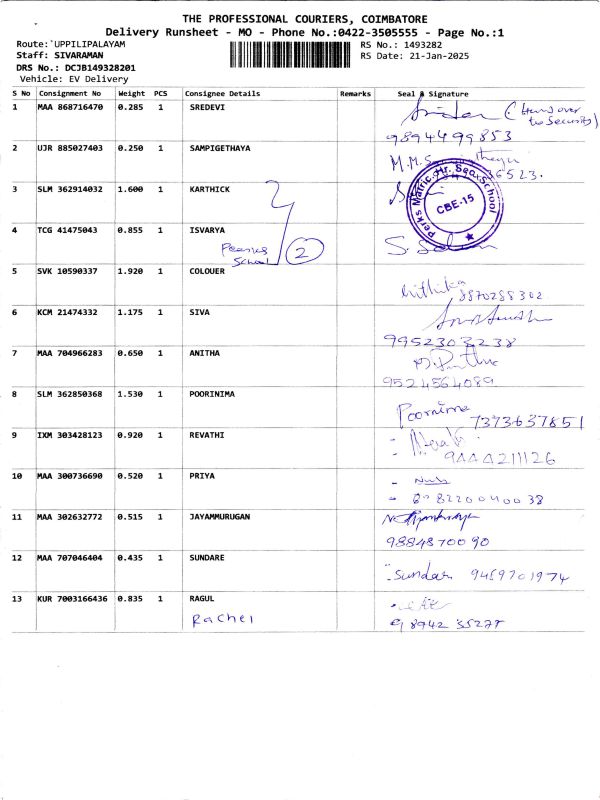 THE PROFESSIONAL COURIERS, COIMBATORE
Delivery Runsheet - MO - Phone No.:0422-3505555 - Page No.:1
Route: UPPILIPALAYAM
RS No.: 1493282
Staff: SIVARAMAN
RS Date: 21-Jan-2025
DRS No.: DCJB149328201
Vehicle: EV Delivery
S No Consignment No Weight PCS Consignee Details Remarks Seal & Signature
1 MAA 868716470 0.285 1 SREDEVI
(Hand over to Security)
9894499853
2 UJR 885027403 0.250 1 SAMPIGETHAYA
M.M.S
36523.
3 SLM 362914032 1.600 1 KARTHICK
Perks Matric. Hr. Sec. School
CBE-15
4 TCG 41475043 0.855 1 ISVARYA
School 2
5 SVK 10590337 1.920 1 COLOUER
8870288302
6 KCM 21474332 1.175 1 SIVA
9952303238
7 MAA 704966283 0.650 1 ANITHA
9524564089
8 SLM 362850368 1.530 1 POORINIMA
Poornima 7373637851
9 IXM 303428123 0.920 1 REVATHI
9444211126
10 MAA 300736690 0.520 1 PRIYA
8220040038
11 MAA 302632772 0.515 1 JAYAMMURUGAN
9884870090
12 MAA 707046404 0.435 1 SUNDARE
Sundar 9489701974
13 KUR 7003166436 0.835 1 RAGUL
Rachel
98942 35277